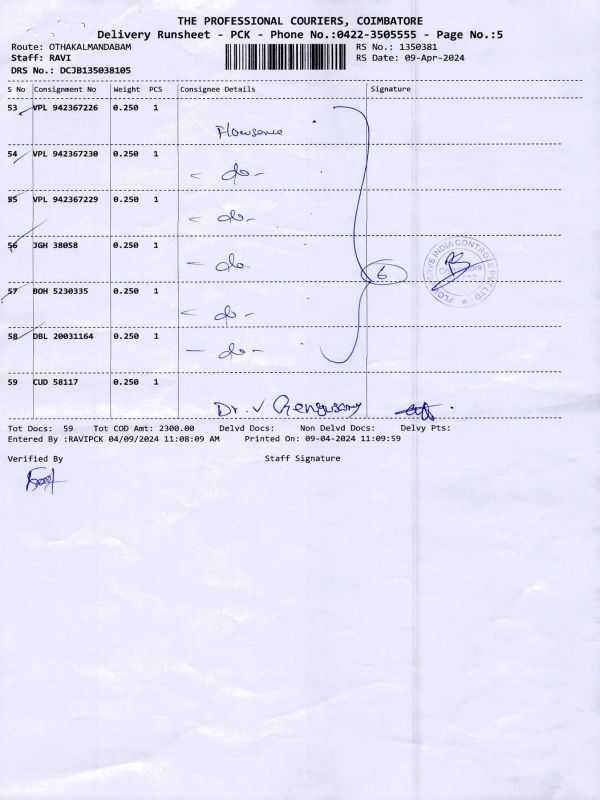 THE PROFESSIONAL COURIERS, COIMBATORE
Delivery Runsheet - PCK - Phone No.:0422-3505555 - Page No.:5
Route: OTHAKALMANDABAM
RS No.: 1350381
Staff: RAVI
RS Date: 09-Apr-2024
DRS No.: DCJB135038105
S No Consignment No Weight PCS Consignee Details Signature
53 VPL 942367226 0.250 1
54 VPL 942367230 0.250 1 - do -
55 VPL 942367229 0.250 1 - do -
56 JGH 38058 0.250 1 - do
57 BOH 5230335 0.250 1 - do -
6
58 DBL 20031164 0.250 1 - do -
59 CUD 58117 0.250 1
Dr. V Rengusamy
Tot Docs: 59 Tot COD Amt: 2300.00 Delvd Docs: Non Delvd Docs: Delvy Pts:
Entered By :RAVIPCK 04/09/2024 11:08:09 AM Printed On: 09-04-2024 11:09:59
Verified By Staff Signature